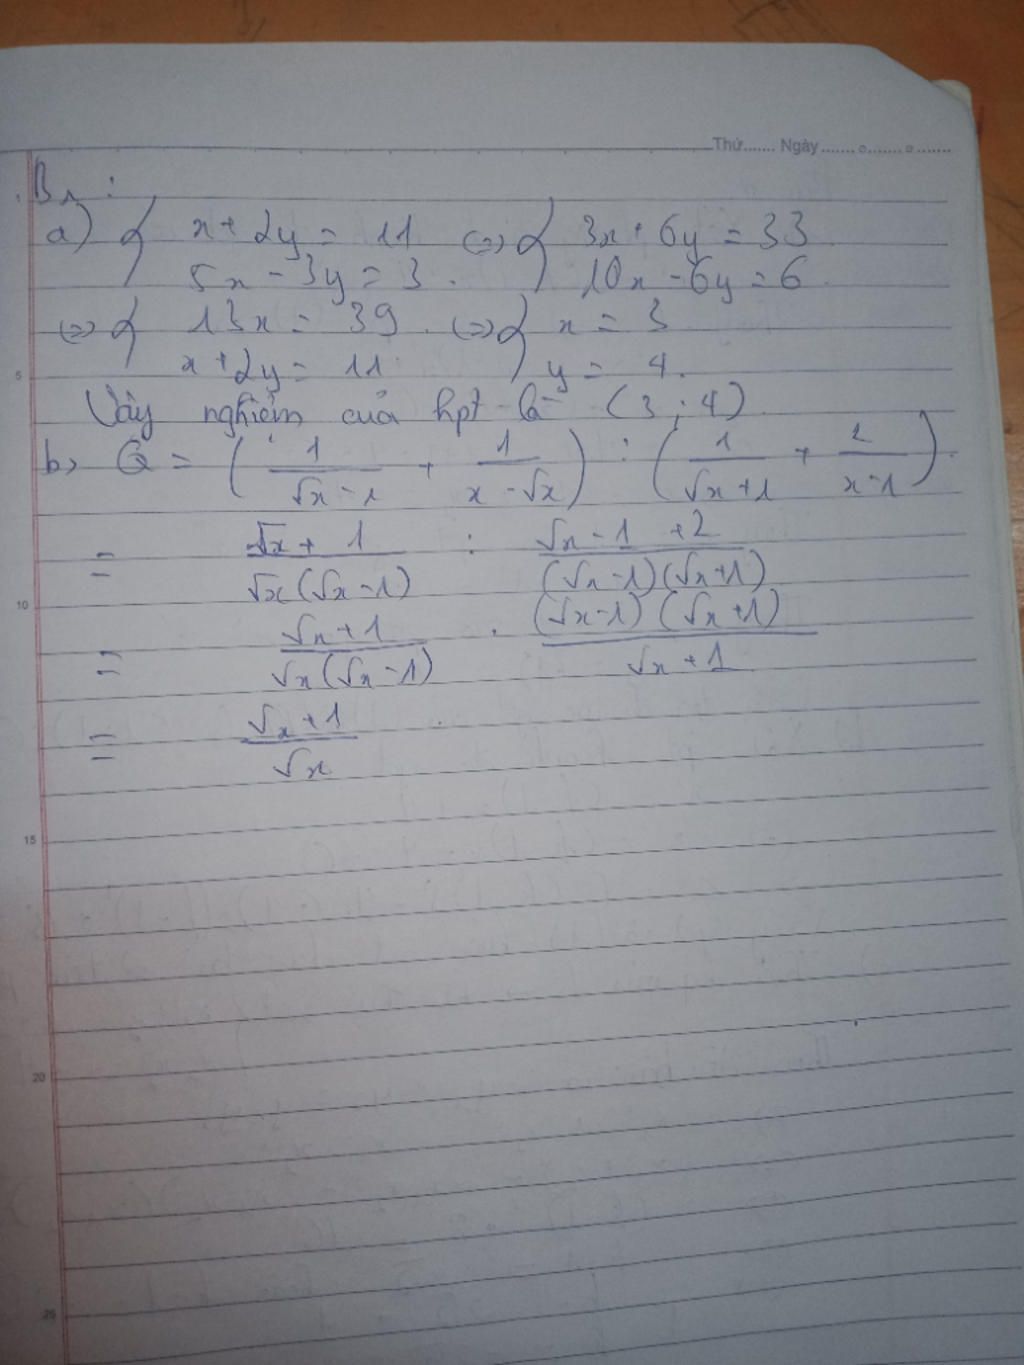 Thứ....... Ngày....... o....... o.......
B1 :
a) { x + 2y = 11 (=) { 3x + 6y = 33
5x - 3y = 3 . 10x - 6y = 6
(=) { 13x = 39 . (=) { x = 3
x + 2y = 11 y = 4 .
Vậy nghiệm của hpt là (3 ; 4)
5
b, Q = ( 1/(√x - 1) + 1/(x - √x) ) : ( 1/(√x + 1) + 2/(x - 1) ) .
= (√x + 1)/(√x (√x - 1)) : (√x - 1 + 2)/((√x - 1)(√x + 1))
10
= (√x + 1)/(√x (√x - 1)) . ((√x - 1)(√x + 1))/(√x + 1)
= (√x + 1)/√x
15
20
25